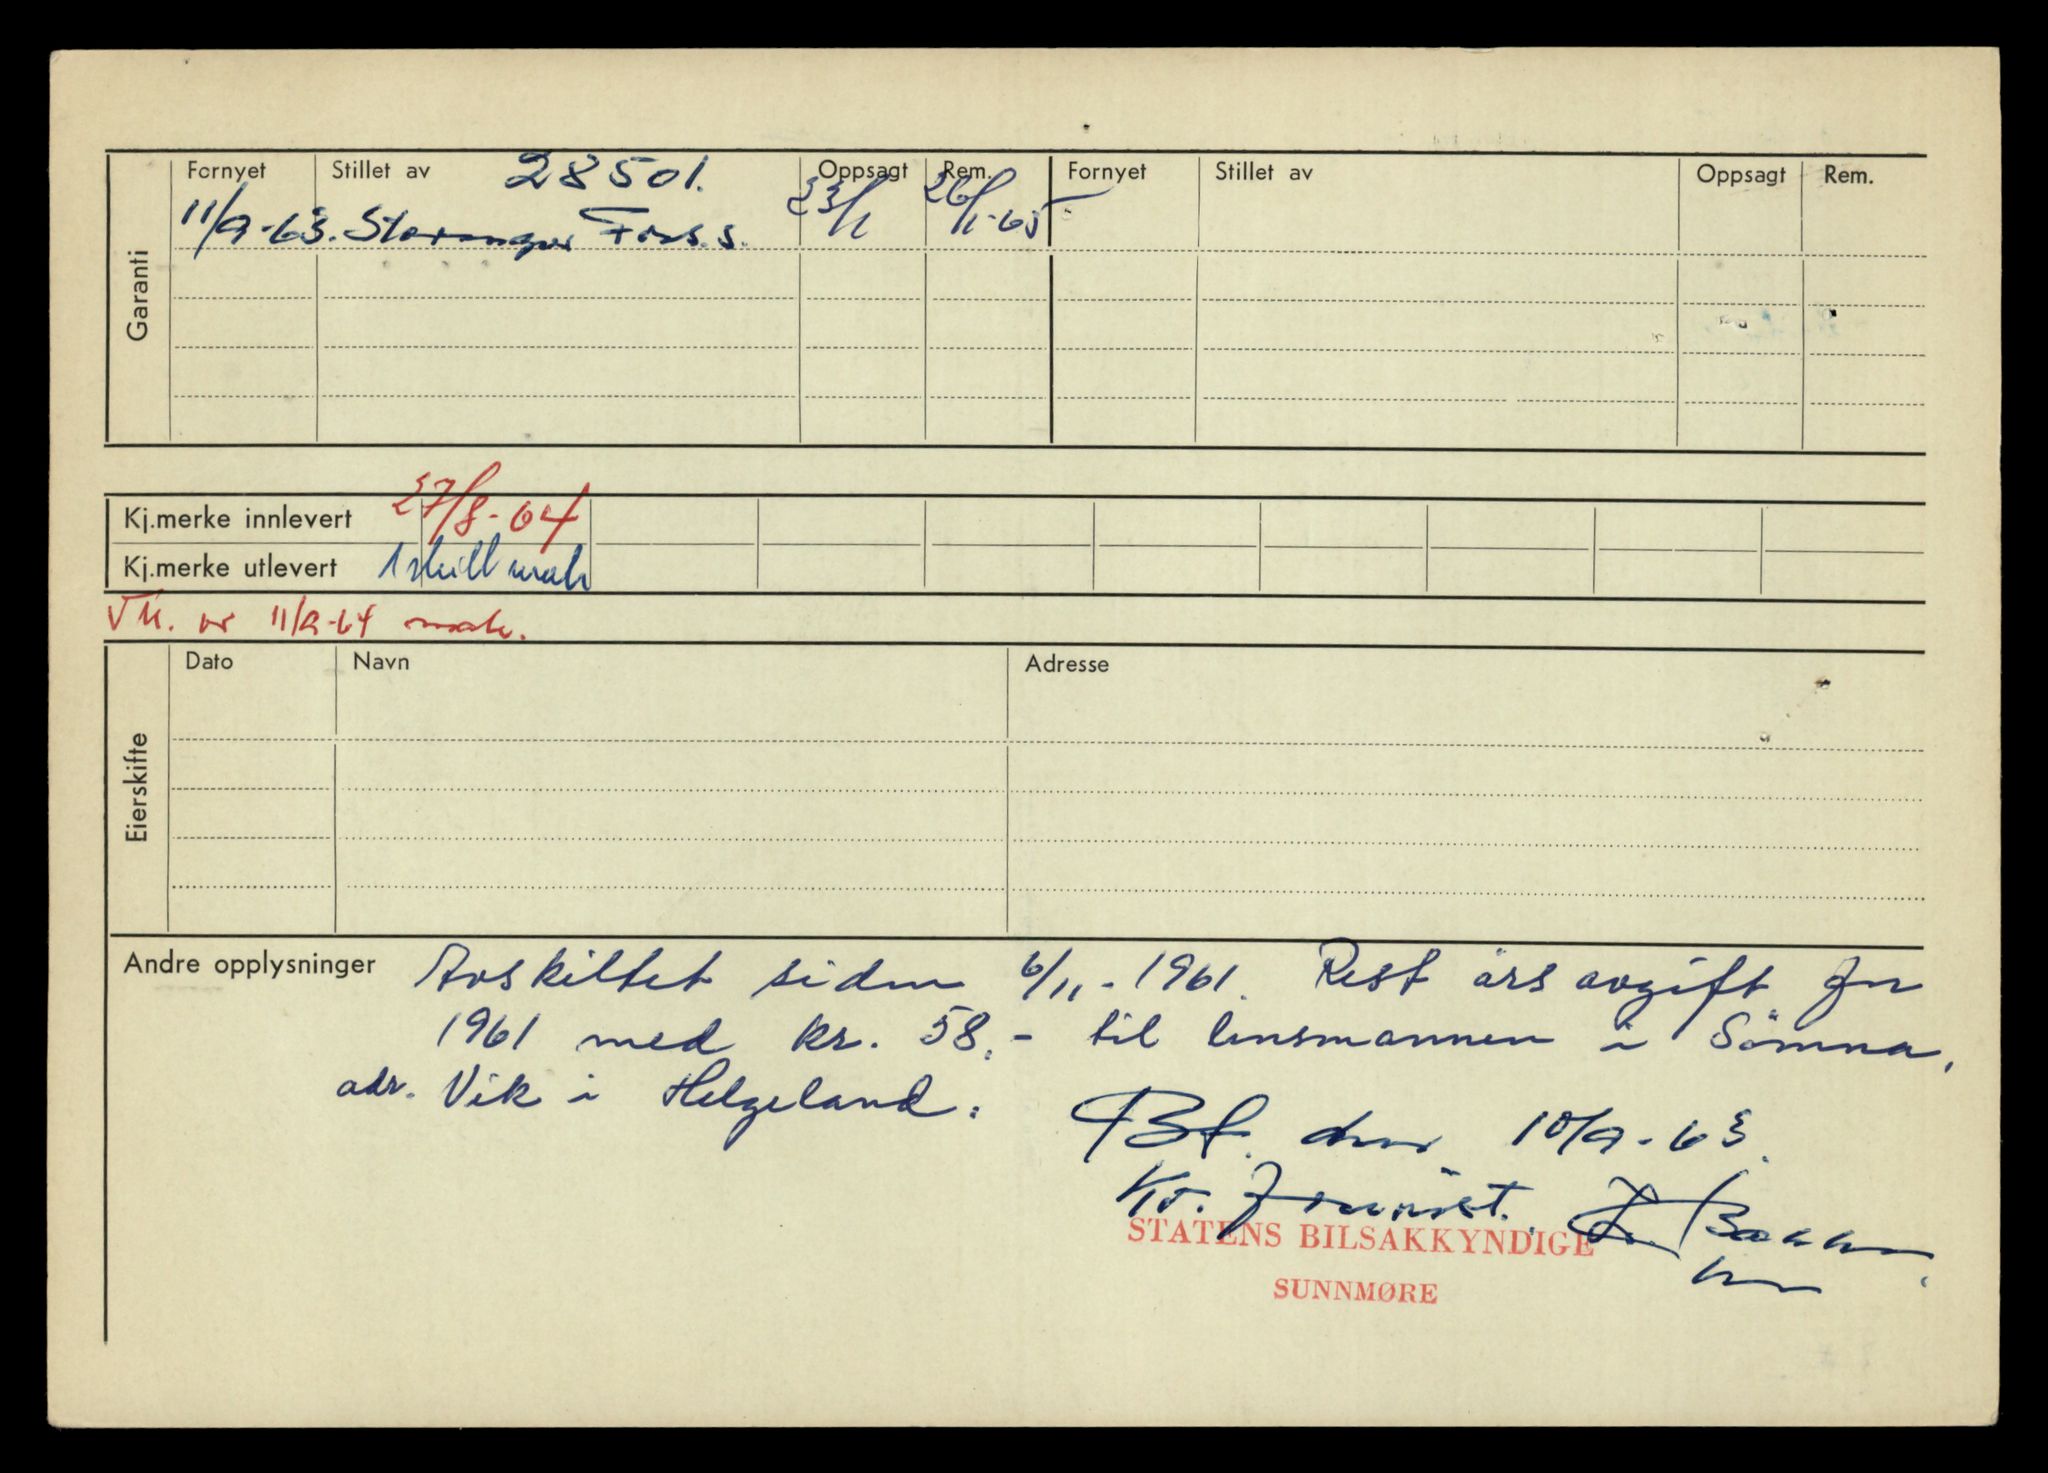 Garanti
Fornyet Stillet av 28501. Oppsagt Rem. Fornyet Stillet av Oppsagt Rem.
11/9-63. Stavanger Fors.s. 23/1 26/1-65
Kj.merke innlevert 27/8-64
Kj.merke utlevert 1 skilt mak
11/9-64 mak.
Eierskifte
Dato Navn Adresse
Andre opplysninger Avskiltet siden 6/11-1961. Rest årsavgift for
1961 med kr. 58.- til lensmannen i Sömna,
adr. Vik i Helgeland.
Bf. den 10/9-63.
Kr.
STATENS BILSAKKYNDIGE
SUNNMØRE